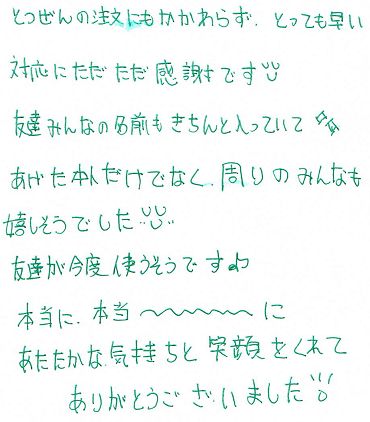 とつぜんの注文にもかかわらず、とっても早い
対応にただただ感謝です
友達みんなの名前もきちんと入っていて
あげた本人だけでなく、周りのみんなも
嬉しそうでした
友達が今度使うそうです♪
本当に、本当〜〜〜〜に
あたたかな気持ちと笑顔をくれて
ありがとうございました